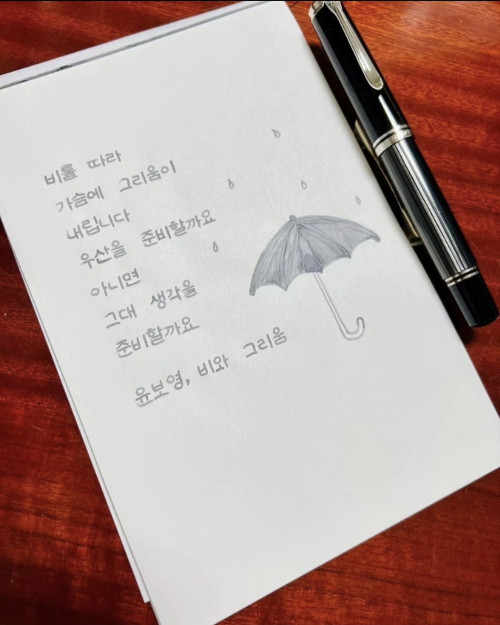 비를 따라
가슴에 그리움이
내립니다
우산을 준비할까요
아니면
그대 생각을
준비할까요
윤보영, 비와 그리움